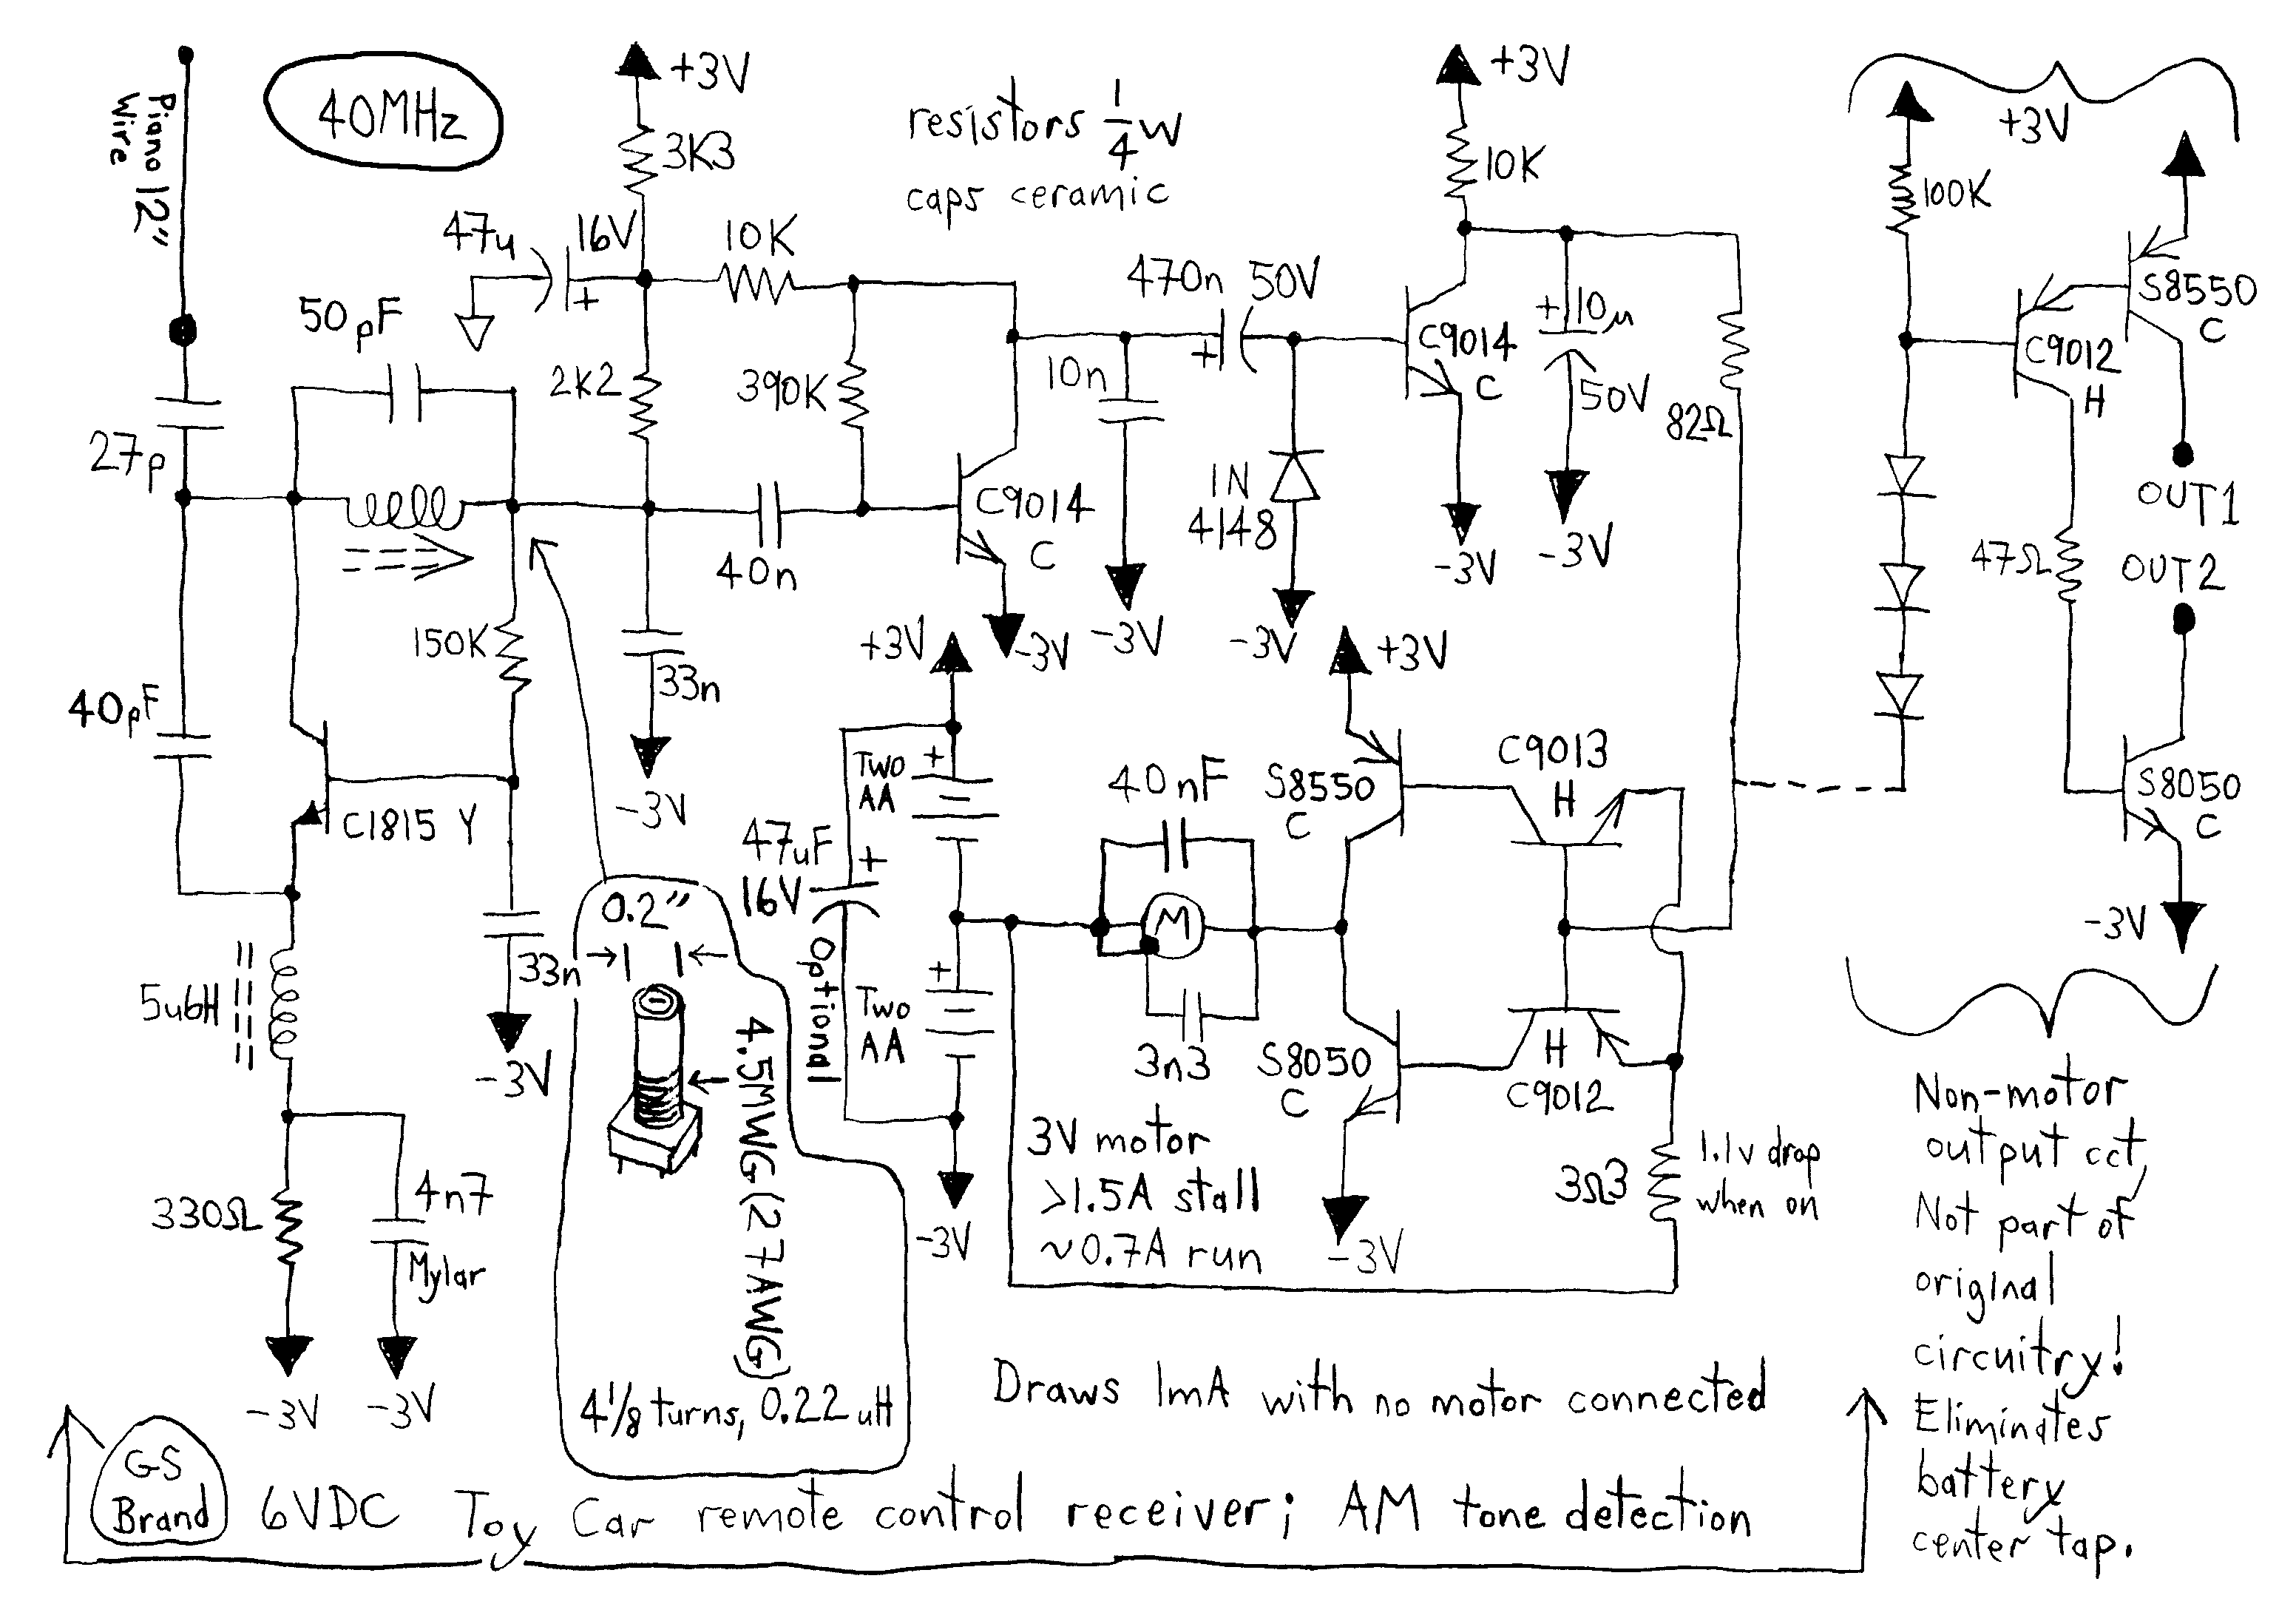 40MHz
Piano 12"
Wire
+3V
3K3
resistors 1/4 W
caps ceramic
+3V
10K
+3V
100K
47u 16V
+
10K
470n 50V
+
50pF
2K2
390K
10n
C9014
C
+10u
50V
82Ω
C9012
H
S8550
C
27p
40n
C9014
C
1N
4148
-3V
-3V
OUT1
OUT2
47Ω
150K
33n
+3V
-3V
-3V
-3V
+3V
40pF
-3V
C1815 Y
Two
AA
+
47uF
16V
+
Optional
40nF
S8550
C
C9013
H
S8050
C
0.2"
M
-3V
5u6H
33n
-3V
4.5MWG(27AWG)
+
Two
AA
3n3
S8050
C
H
C9012
3V motor
>1.5A stall
~0.7A run
-3V
-3V
3Ω3
1.1v drop
when on
330Ω
4n7
Mylar
-3V
-3V
4 1/8 turns, 0.22 uH
Draws 1mA with no motor connected
GS
Brand
6VDC Toy Car remote control receiver; AM tone detection
Non-motor
output cct,
Not part of
original
circuitry!
Eliminates
battery
center tap.